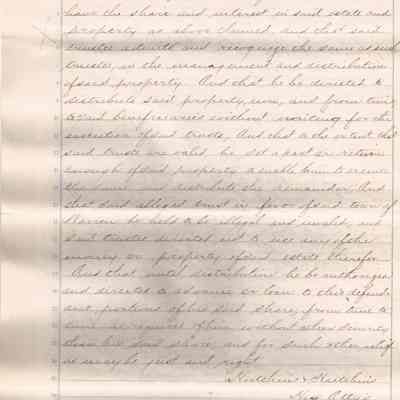 have the share and interest in said estate and
property as above claimed, and that said
trustee admits and recognize the same as such
trustee, in the management and distribution
of said property. And that he be directed to
distribute said property, now, and from time
to said beneficiaries without waiting for the
execution of said trusts, And that to the extent that
said trusts are valid he set apart or retain
enough of said property to enable him to execute
the same and distribute the remainder. And
that said alleged trust in favor of said town of
he held to be illegal and invalid, and
said trustee directed not to use any of the
money or property of said estate therefor.
And that until distribution he be authorized
and directed to advance or loan to this defend-
ant portions of his said share, from time to
time as required of him without other security
than his said share, and for such other relief
as may be just and right
Hutchins & Hutchins
His Attys